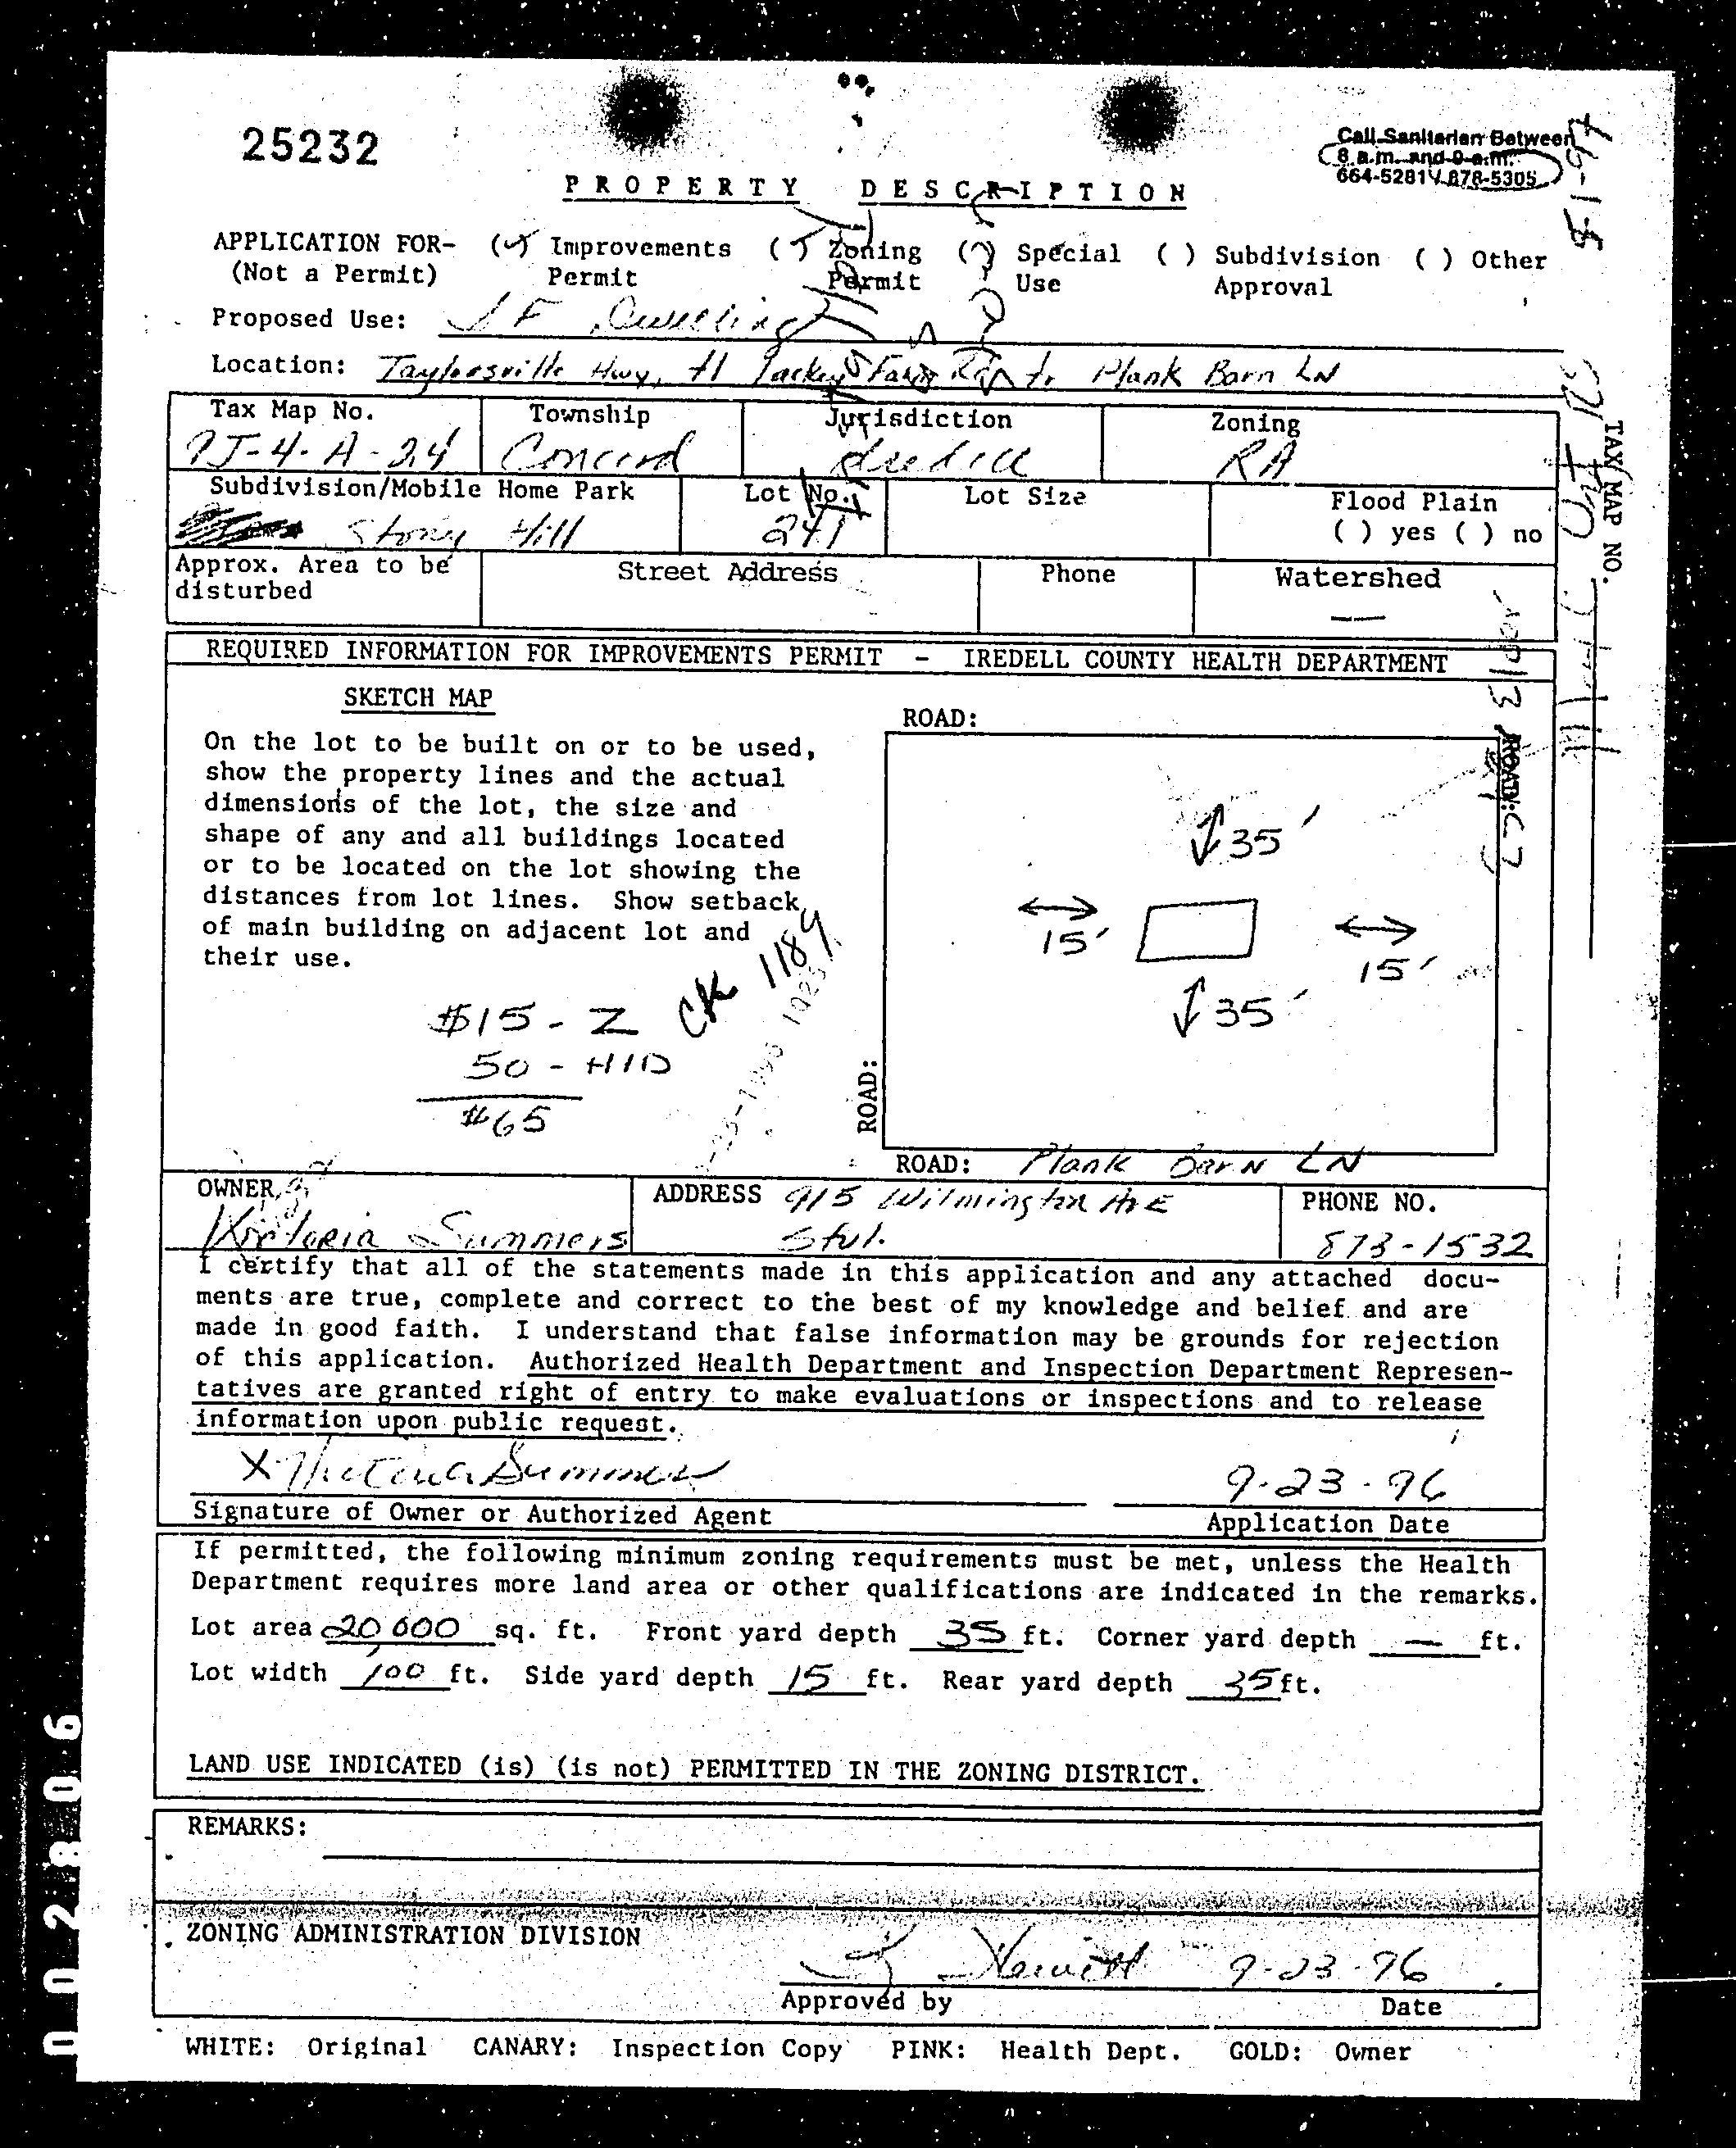 25232
Call Sanitarian Between
8 a.m. and 9 a.m.
664-5281 / 878-5305
PROPERTY DESCRIPTION
APPLICATION FOR- (✓) Improvements ( ) Zoning ( ) Special ( ) Subdivision ( ) Other
(Not a Permit) Permit Permit Use Approval
Proposed Use: SF Dwelling
Location: Taylorsville Hwy, tl Lackey Farm Rd, tr Plank Barn LN
Tax Map No. Township Jurisdiction Zoning
7J-4-A-24 Concord Iredell RA
Subdivision/Mobile Home Park Lot No. Lot Size Flood Plain
Stony Hill 241 ( ) yes ( ) no
Approx. Area to be Street Address Phone Watershed
disturbed —
TAX MAP NO.
REQUIRED INFORMATION FOR IMPROVEMENTS PERMIT - IREDELL COUNTY HEALTH DEPARTMENT
SKETCH MAP
ROAD:
On the lot to be built on or to be used,
show the property lines and the actual
dimensions of the lot, the size and
shape of any and all buildings located
or to be located on the lot showing the
distances from lot lines. Show setback
of main building on adjacent lot and
their use.
ROAD:
35'
15'
15'
35'
$15 - Z
CK 1189
50 - HD
$65
ROAD:
ROAD: Plank Barn LN
OWNER ADDRESS 915 Wilmington AvE PHONE NO.
Summers Stvl. 873-1532
I certify that all of the statements made in this application and any attached docu-
ments are true, complete and correct to the best of my knowledge and belief and are
made in good faith. I understand that false information may be grounds for rejection
of this application. Authorized Health Department and Inspection Department Represen-
tatives are granted right of entry to make evaluations or inspections and to release
information upon public request.
X Summers 9-23-96
Signature of Owner or Authorized Agent Application Date
If permitted, the following minimum zoning requirements must be met, unless the Health
Department requires more land area or other qualifications are indicated in the remarks.
Lot area 20,000 sq. ft. Front yard depth 35 ft. Corner yard depth — ft.
Lot width 100 ft. Side yard depth 15 ft. Rear yard depth 35 ft.
LAND USE INDICATED (is) (is not) PERMITTED IN THE ZONING DISTRICT.
REMARKS:
ZONING ADMINISTRATION DIVISION
9-23-96
Approved by Date
WHITE: Original CANARY: Inspection Copy PINK: Health Dept. GOLD: Owner
002806